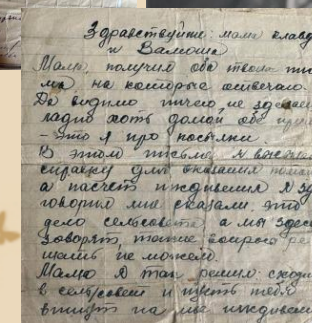 Здравствуйте: мама клавд
и Валюша
Мама, получил оба твоих пис
ма на которые отвечаю.
Да видимо ничего не сделаем
ладно хоть домой оба
– это я про посылки
В этом письме я высылаю
справку для оказания помощи
а насчет иждивения я зд
говорил мне сказали это
дело сельсовета, а мы здес
говорят, такие вопросы ре
шать не можем.
Мама я так решил: сходи
в сельсовет и пусть тебя
впишут на мое иждивение